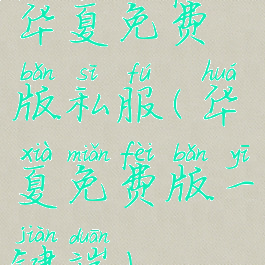 华夏免费
bǎn sī fú huá
版私服(华
xià miǎn fèi bǎn yī
夏免费版一
jiàn duān
键端)